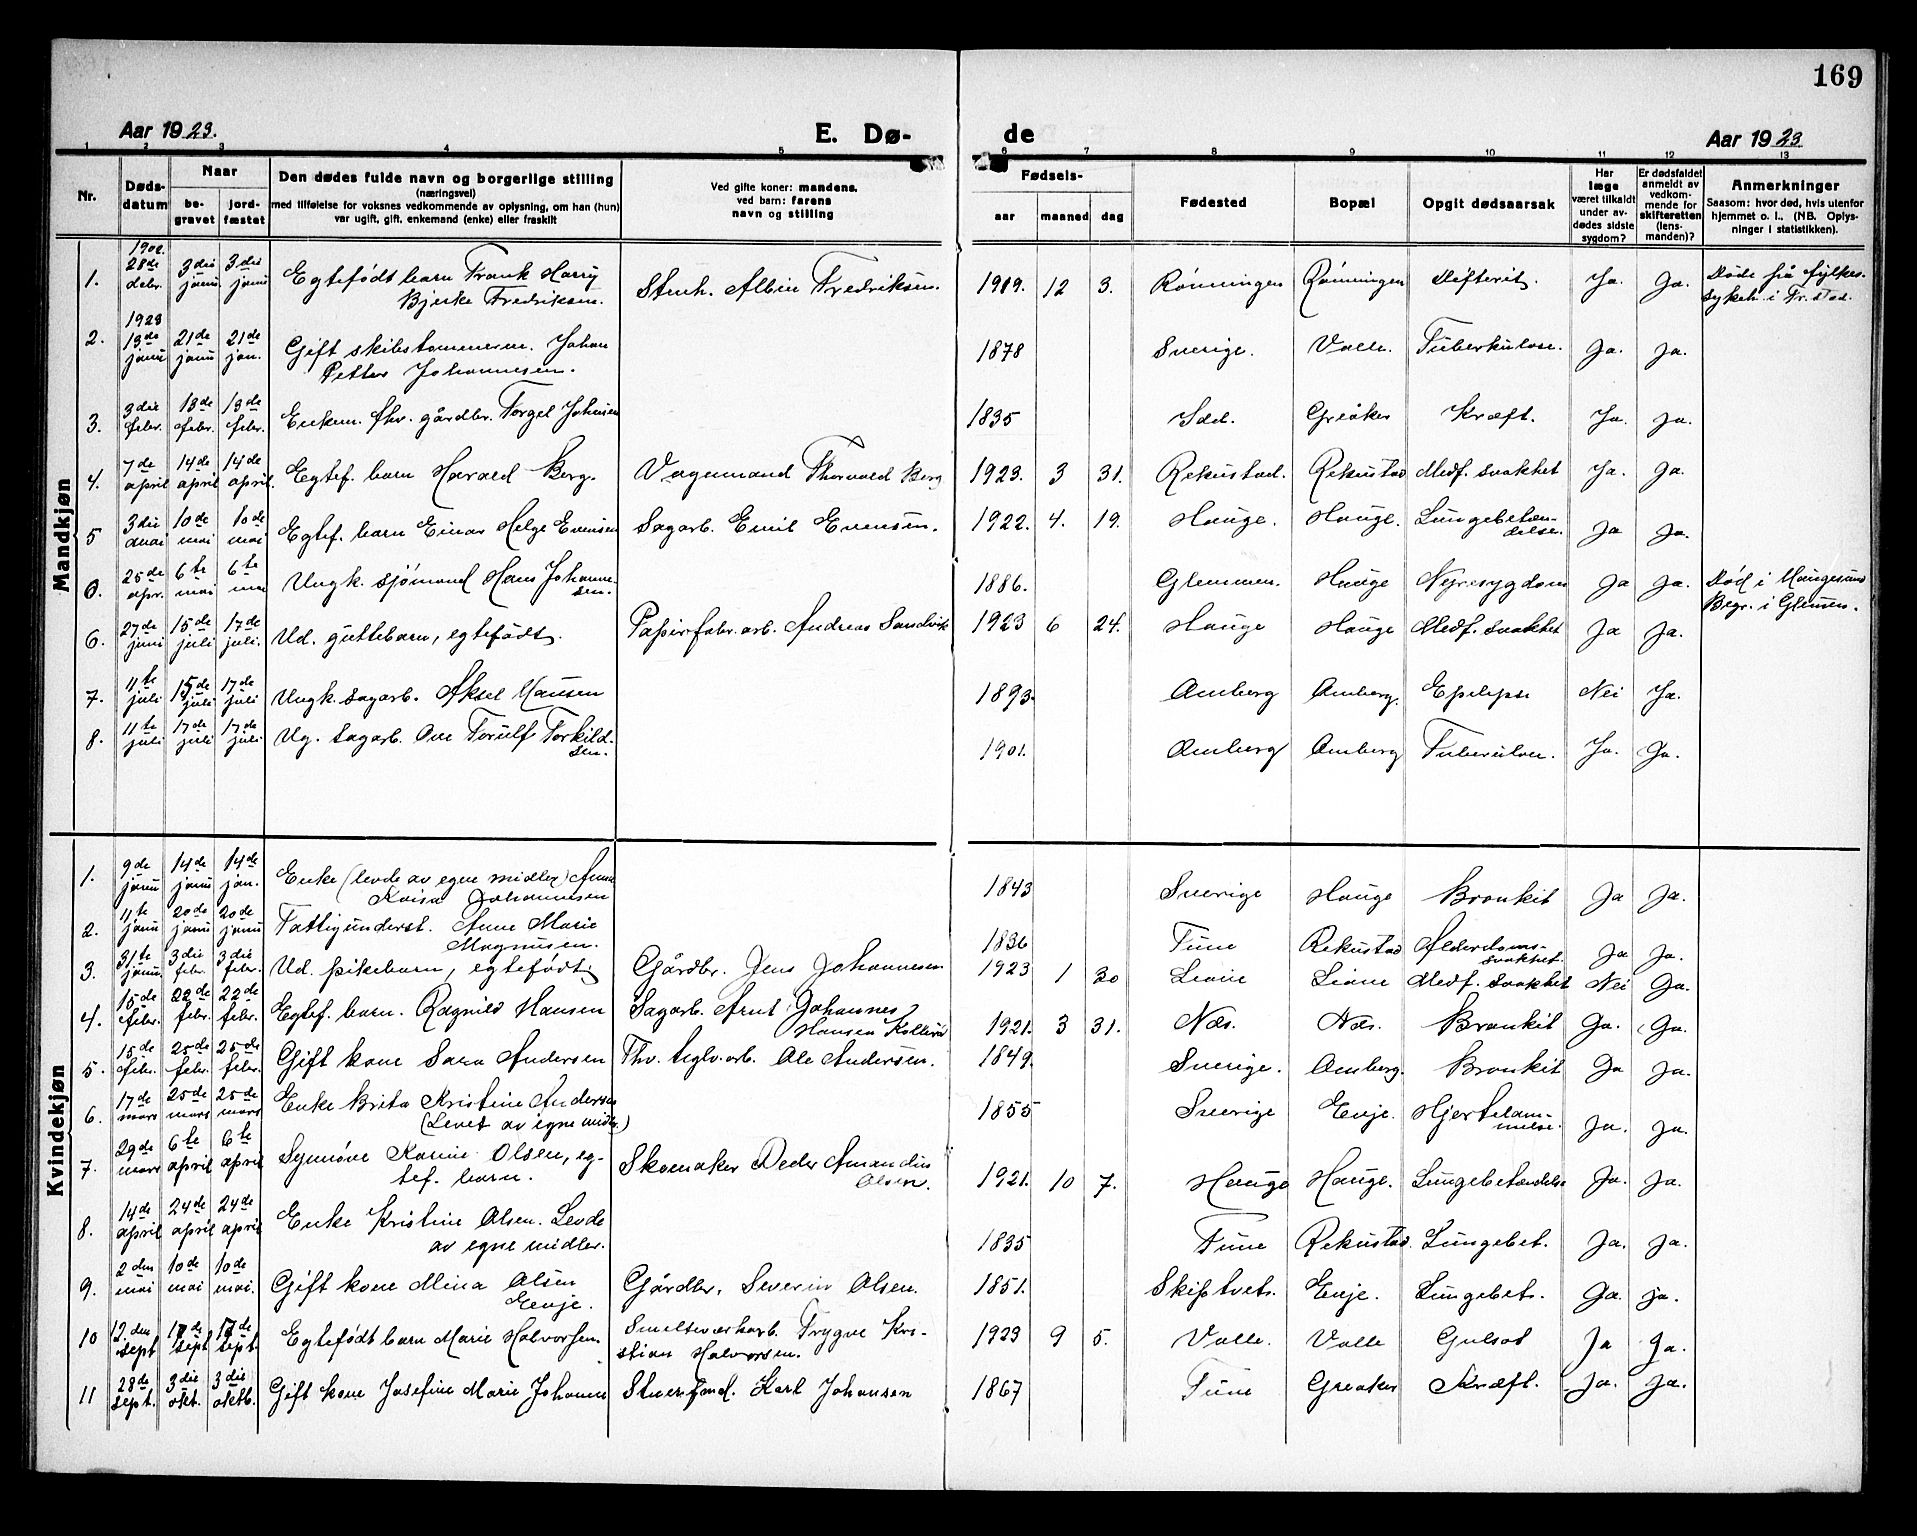 169
Aar 1923.
E. Dø-
de
Aar 1923
1 2 3 4 5 6 7 8 9 10 11 12 13
Nr.
Døds-
datum
Naar
be-
gravet
jord-
fæstet
Den dødes fulde navn og borgerlige stilling
(næringsvei)
med tilføielse for voksnes vedkommende av oplysning, om han (hun)
var ugift, gift, enkemand (enke) eller fraskilt
Ved gifte koner: mandens,
ved barn: farens
navn og stilling
Fødsels-
aar maaned dag
Fødested
Bopæl
Opgit dødsaarsak
Har
læge
været tilkaldt
under av-
dødes sidste
sygdom?
Er dødsfaldet
anmeldt av
vedkom-
mende for
skifteretten
(lens-
manden)?
Anmerkninger
Saasom: hvor død, hvis utenfor
hjemmet o. l.. (NB. Oplys-
ninger i statistikken).
Mandkjøn
1. 28de debr. 3die janu 3die janu Egtefødt barn Frank Harry
Bjerke Fredriksen. Stenh. Albin Fredriksen. 1919. 12 3. Rønningen Rønningen Difterit. Ja. Ja. Døde på fylkes-
sykeh. i Fr.stad.
1923
2. 13de janu 21de janu 21de jan. Gift skibstømmerm. Johan
Petter Johannesen. 1878 Sverige. Valle. Tuberkulose. Ja. Ja.
3. 3die febr. 13de febr. 13de febr. Enkem. fhv. gårdbr. Torgel Johnsen 1835 Idd. Greåker Kræft. Ja. Ja.
4. 7de april 14de april 14de april. Egtef. barn Harald Berg. Vognmand Thorvald Berg 1923. 3 31. Rekustad. Rekustad Medf. svakhet Ja. Ja.
5 3die mai 10de mai 10de mai Egtef. barn Einar Helge Evensen Sagarb. Emil Evensen. 1922. 4. 19. Hauge. Hauge. Lungebeten-
delse. Ja Ja.
6. 25de apr. 6te mai 6te mai Ungk. sjømand Hans Johanne-
sen. 1886. Glemmen. Hauge Nyresygdom Ja Ja. Død i Haugesund
Begr. i Glemen.
6. 27de juni 15de juli 17de juli. Ud. guttebarn, egtefødt. Papirfabr. arb. Andreas Sandvik 1923 6 24. Hauge Hauge Medf. svakhet Ja Ja.
7. 11te juli 15de juli 17de juli Ungk. sagarb. Aksel Hansen 1893. Amberg Amberg. Epilepsi Nei Ja.
8. 11te juli 17de juli 17de juli Ug. sagarb. Ove Torulf Torkild-
sen. 1901. Amberg Amberg Tuberulose. Ja. Ja.
Kvindekjøn
1. 9de janu 14de janu 14de jan. Enke (levde av egne midler) Anna
Kaisa Johannesen 1843 Sverige Hauge Bronkit Ja Ja.
2. 11te janu 20de janu 20de janu Fattigunderst. Anne Marie
Magnusen. 1836 Tune Rekustad Alderdoms-
svakhet. Ja Ja.
3. 31te janu. 3die febr. 3die febr. Ud. pikebarn, egtefødt Gårdbr. Jens Johannesen 1923 1 30 Leine Leine Medf. svakhet Nei Ja.
4. 15de febr. 22de febr. 22de febr. Egtef. barn. Ragnild Hansen Sagarb. Arnt Johannes
Hansen 1921. 3 31. Næs. Næs. Bronkit Ja. Ja.
5. 15de febr. 25de febr. 25de febr. Gift kone Sara Andersen Fhv. teglv.arb. Ole Andersen. 1849. Sverige. Amberg. Bronkit Ja Ja.
6. 17de mars 25de mars 25de mars Enke Brita Kristine Andersen
(Levet av egne midler) 1855 Sverige Enje. Hjertelam-
melse. Ja. Ja.
7. 29de mars 6te april 6te april Synnøve Karine Olsen, eg-
tef. barn. Skomaker Peder Amandus
Olsen. 1921. 10 7. Hauge Hauge. Lungebetændelse Ja. Ja.
8. 14de april 24de april 24de april Enke Kristine Olsen. Levde
av egne midler. 1835 Tune Rekustad. Lungebet. Ja. Ja.
9. 2den mai 10de mai 10de mai. Gift kone Mina Olsen
Enje. Gårdbr. Severin Olsen. 1851. Skiptvet. Enje. Lungebet. Ja. Ja.
10 12.den sept 17de sept 17de sept. Egtefødt barn Marie Halvorsen. Smelteverkarb. Trygve Kri-
stian Halvorsen. 1923 9 5. Valle. Valle Gulsot Ja Ja.
11 28de sept. 3die okt. 3die oktb. Gift kone Josefine Marie Johansen Karl Johansen 1867 Tune Greaker Kræft. Ja. Ja.